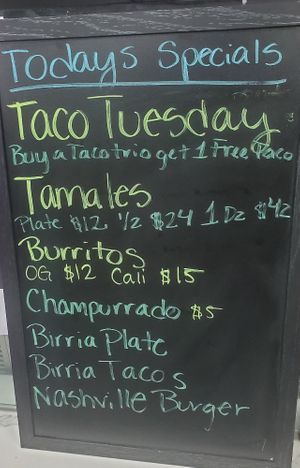 Todays Specials
Taco Tuesday
Buy a Taco trio get 1 Free Taco
Tamales
Plate $12 1/2 $24 1 Dz $42
Burritos
OG $12 Cali $15
Champurrado $5
Birria Plate
Birria Tacos
Nashville Burger